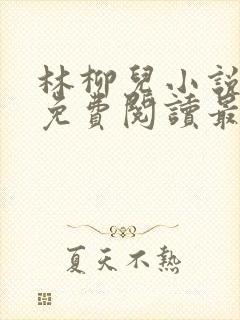 林柳兒小說
免費閱讀最
夏天不熱